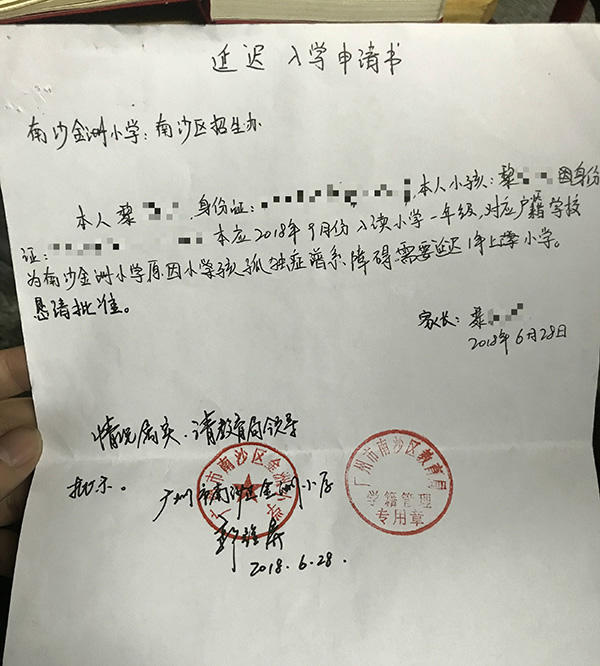 延迟入学申请书
南沙金洲小学：南沙区招生办
本人黎 ，身份证： ，本人小孩：黎 因身份
证： 本应2018年9月份入读小学一年级，对应户籍学校
为南沙金洲小学原因小孩孤独症谱系障碍需要延迟1年上小学。
恳请批准。
家长：黎
2018年6月28日
情况属实，请教育局领导
批示。
广州市南沙区金洲小学
2018.6.28.
广州市南沙区金洲小学
广州市南沙区教育局
学籍管理
专用章